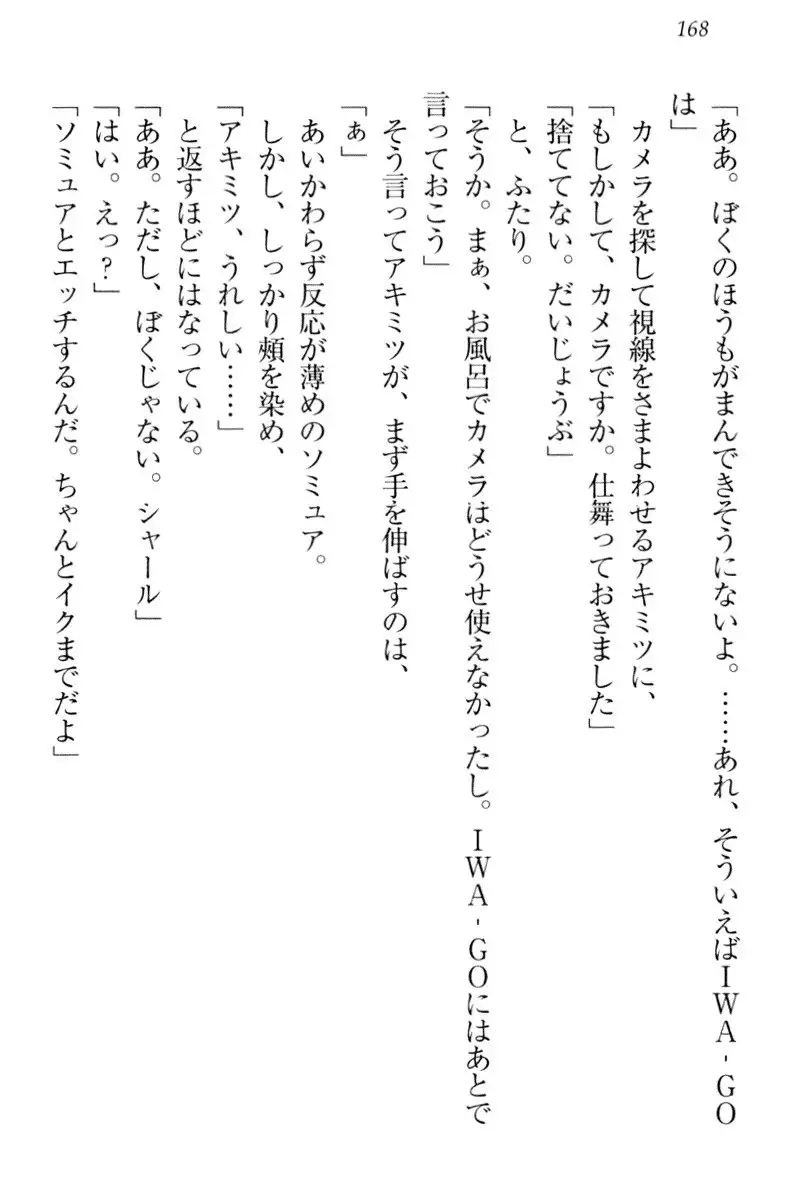 168
「ああ。ぼくのほうもがまんできそうにないよ。……あれ、そういえばＩＷＡ‐ＧＯ
は」
カメラを探して視線をさまよわせるアキミツに、
「もしかして、カメラですか。仕舞っておきました」
「捨ててない。だいじょうぶ」
と、ふたり。
「そうか。まぁ、お風呂でカメラはどうせ使えなかったし。ＩＷＡ‐ＧＯにはあとで
言っておこう」
そう言ってアキミツが、まず手を伸ばすのは、
「ぁ」
あいかわらず反応が薄めのソミュア。
しかし、しっかり頰を染め、
「アキミツ、うれしい……」
と返すほどにはなっている。
「ああ。ただし、ぼくじゃない。シャール」
「はい。えっ？」
「ソミュアとエッチするんだ。ちゃんとイクまでだよ」